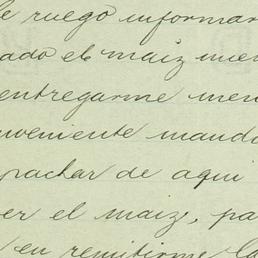 le ruego informar
ado el maiz nue
entregarme men
nveniente manda
pachar de aqui
er el maiz, pa
en remitirme la